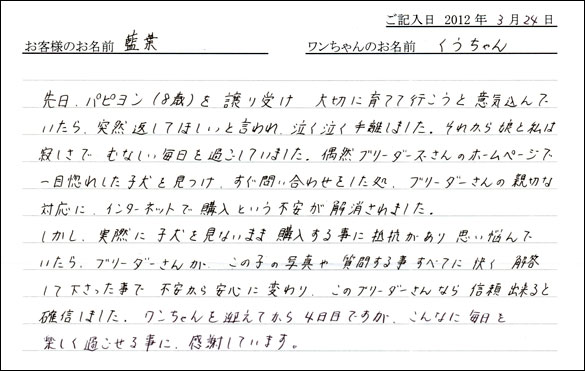 ご記入日 2012年 3月24日
お客様のお名前 藍葉 ワンちゃんのお名前 くうちゃん
先日、パピヨン(8歳)を 譲り受け 大切に育てて行こうと意気込んで
いたら、突然返してほしいと言われ、泣く泣く手離しました。それから娘と私は
寂しさで むなしい毎日を過ごしていました。偶然ブリーダーズさんのホームページで
一目惚れした子犬を見つけ、すぐ問い合わせをした処、ブリーダーさんの親切な
対応に、インターネットで購入という不安が解消されました。
しかし、実際に子犬を見ないまま購入する事に抵抗があり思い悩んで
いたら、ブリーダーさんが、この子の写真や質問する事すべてに快く解答
して下さった事で 不安から安心に変わり、このブリーダーさんなら信頼出来ると
確信しました。ワンちゃんを迎えてから4日目ですが、こんなに毎日を
楽しく過ごせる事に、感謝しています。